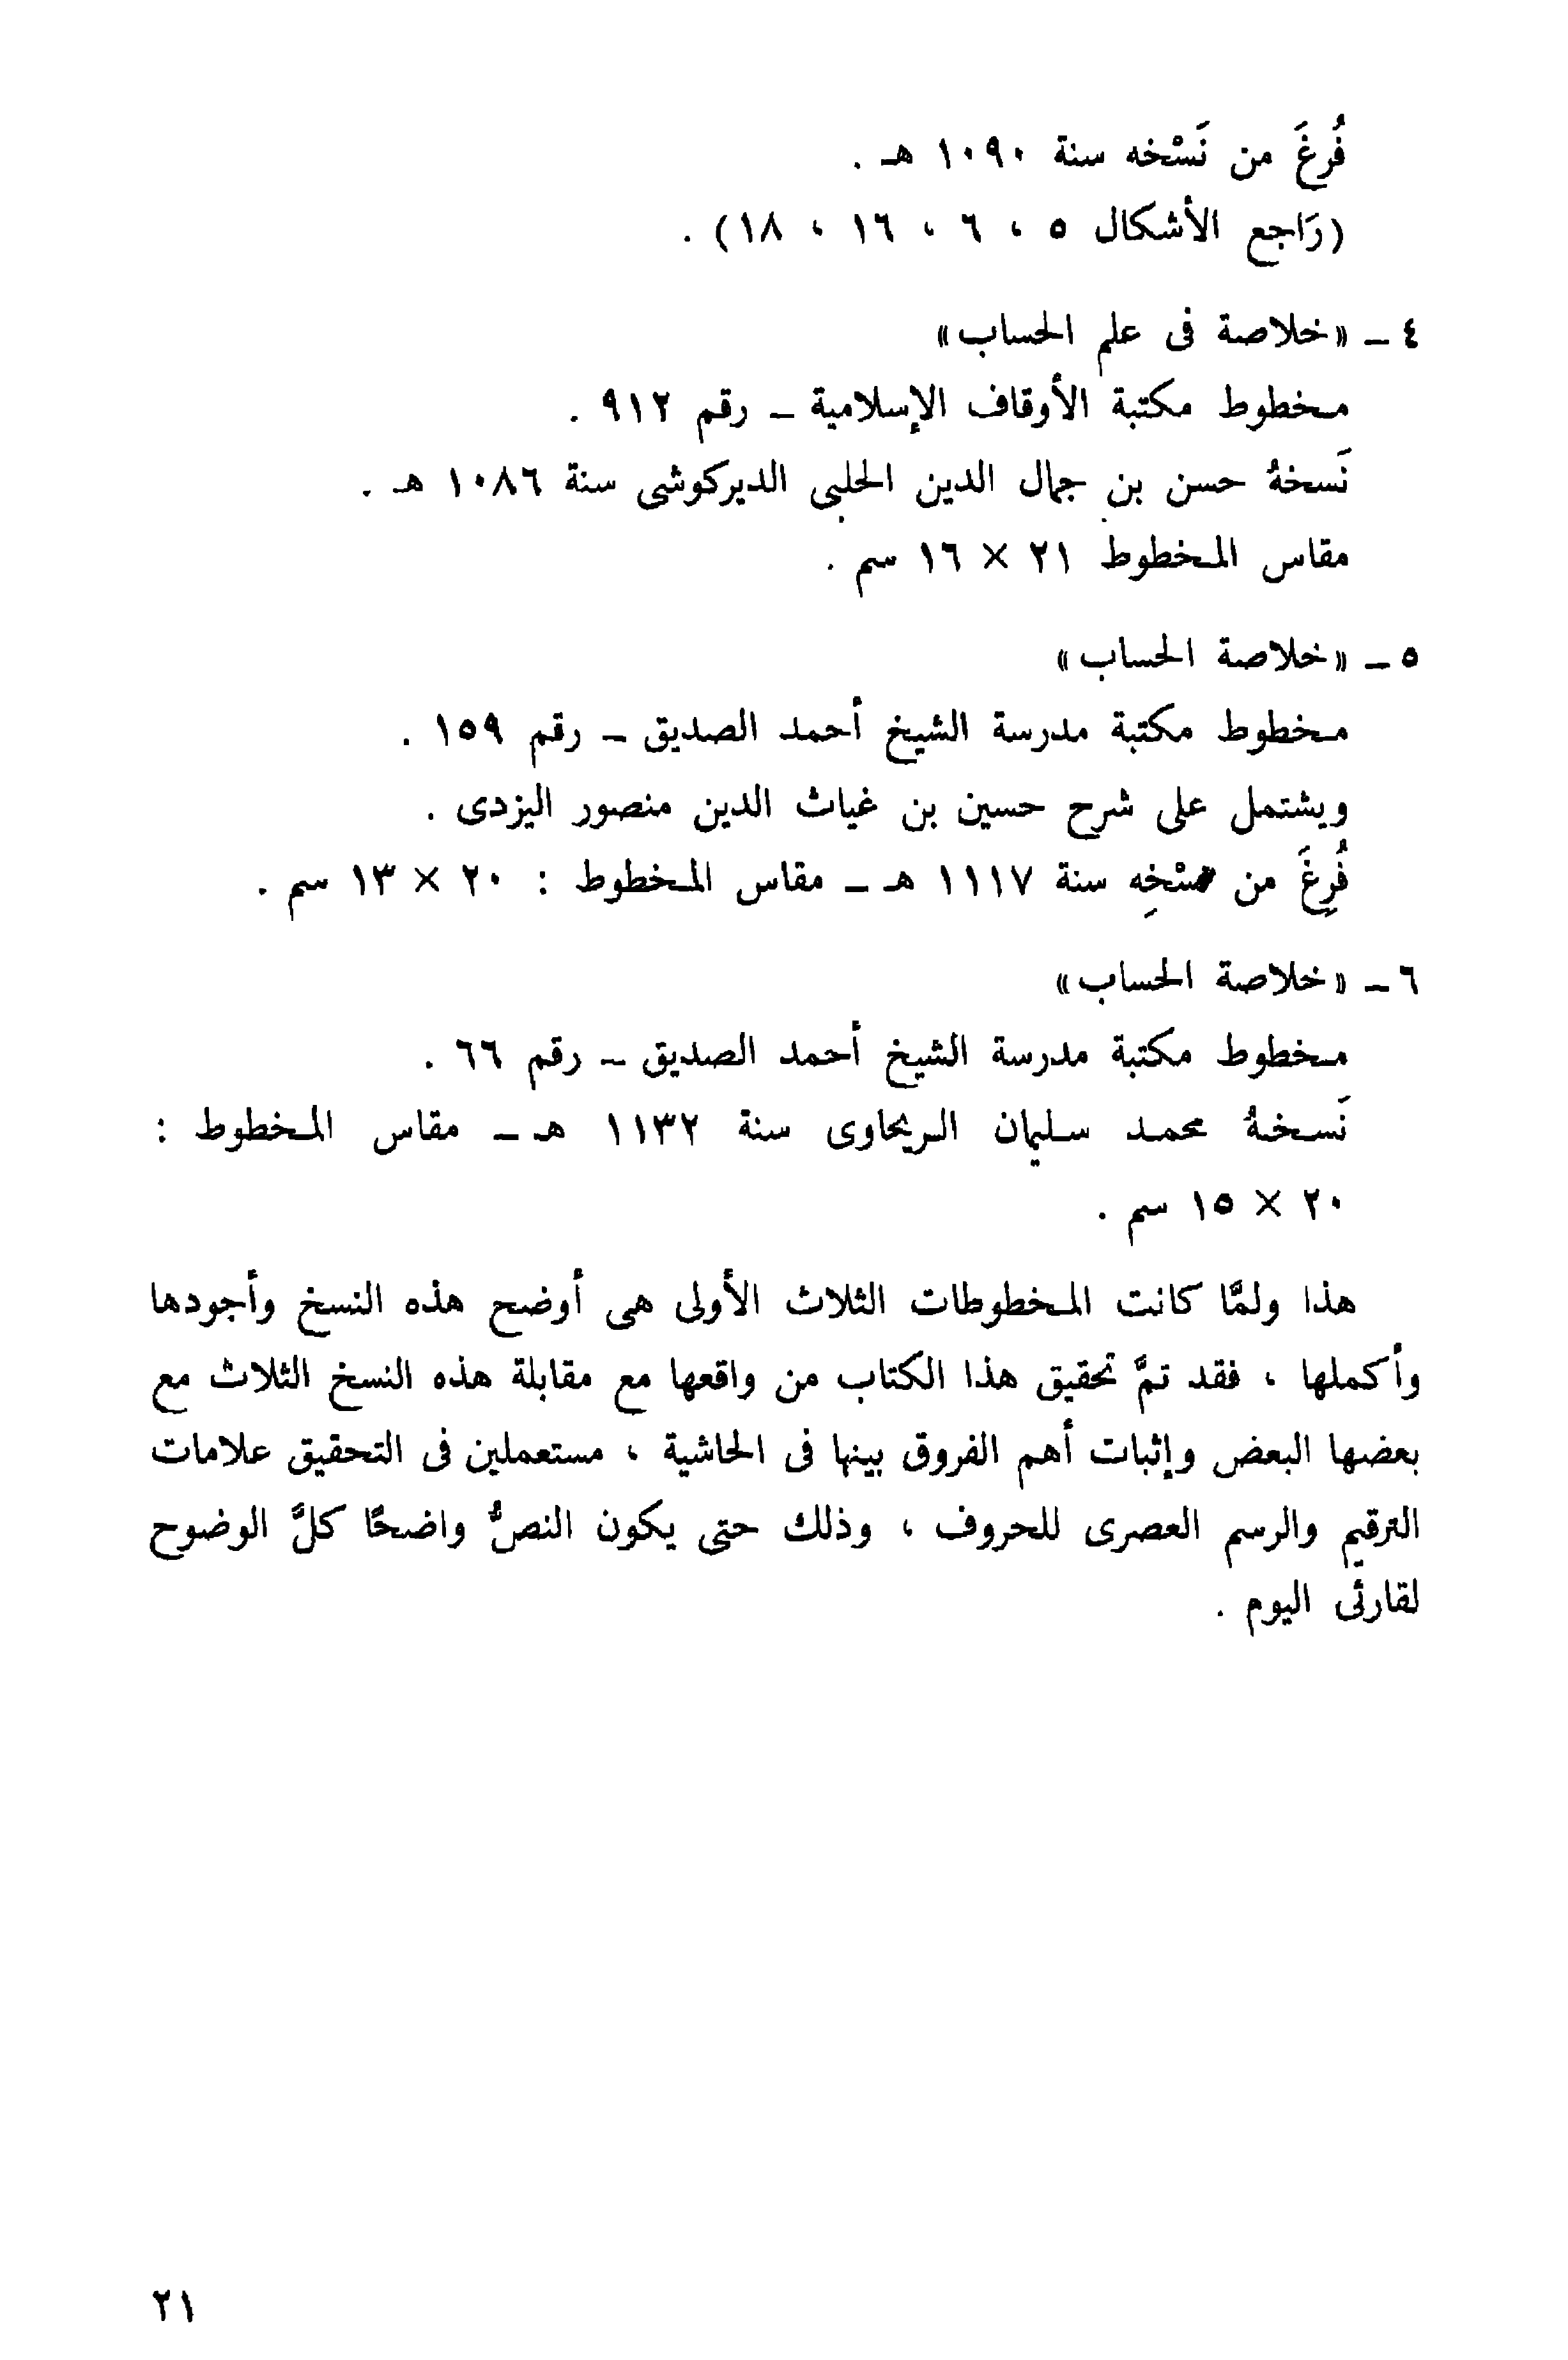 فُرغَ من نَسْخه سنة ١٠٩٠ هـ .
(رَاجع الأشكال ٥ ، ٦ ، ١٦ ، ١٨) .
٤ - «خلاصة فى علم الحساب»
مخطوط مكتبة الأوقاف الإسلامية - رقم ٩١٢ .
نَسخهُ حسن بن جمال الدين الحلبى الديركوشى سنة ١٠٨٦ هـ .
مقاس المخطوط ٢١ × ١٦ سم .
٥ - «خلاصة الحساب»
مخطوط مكتبة مدرسة الشيخ أحمد الصديق - رقم ١٥٩ .
ويشتمل على شرح حسين بن غياث الدين منصور اليزدى .
فُرِغَ من نسْخِه سنة ١١١٧ هـ - مقاس المخطوط : ٢٠ × ١٣ سم .
٦ - «خلاصة الحساب»
مخطوط مكتبة مدرسة الشيخ أحمد الصديق - رقم ٦٦ .
نَسخهُ محمد سليمان الريحاوى سنة ١١٣٢ هـ - مقاس المخطوط :
٢٠ × ١٥ سم .
هذا ولمَّا كانت المخطوطات الثلاث الأولى هى أوضح هذه النسخ وأجودها
وأكملها ، فقد تمَّ تحقيق هذا الكتاب من واقعها مع مقابلة هذه النسخ الثلاث مع
بعضها البعض وإثبات أهم الفروق بينها فى الحاشية ، مستعملين فى التحقيق علامات
الترقيم والرسم العصرى للحروف ، وذلك حتى يكون النصُّ واضحًا كلَّ الوضوح
لقارئى اليوم .
٢١